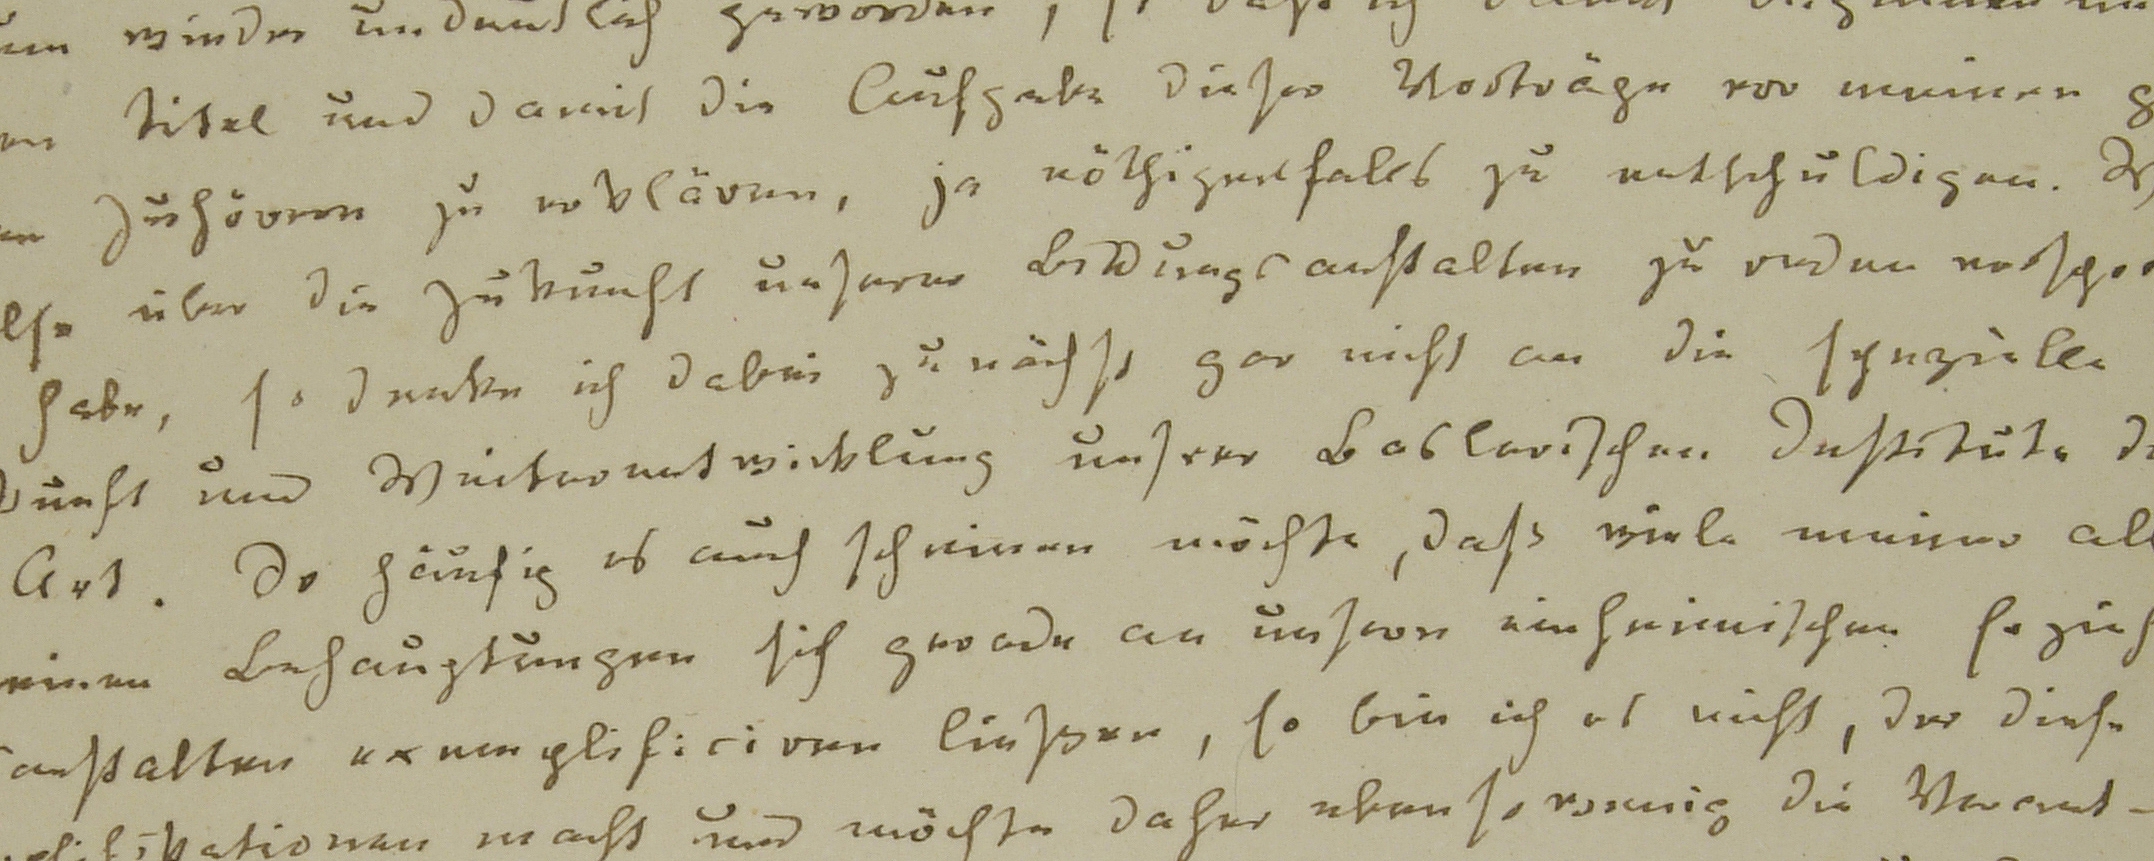 wieder undeutlich geworden, so daß ich
Titel und damit die Aufgabe dieser Vorträge vor meinen g
Zuhörern zu erklären, ja nöthigenfalls zu entschuldigen. W
über die Zukunft unserer Bildungsanstalten zu reden verspro
habe, so denke ich dabei zunächst gar nicht an die spezielle
kunft und Weiterentwicklung unsrer Baslerischen Institute di
Art. So häufig es auch scheinen möchte, daß viele meiner all
einen Behauptungen sich gerade an unsern einheimischen Erzieh
anstalten exemplificiren ließen, so bin ich es nicht, der diese
plifikationen macht und möchte daher ebensowenig die Verant-